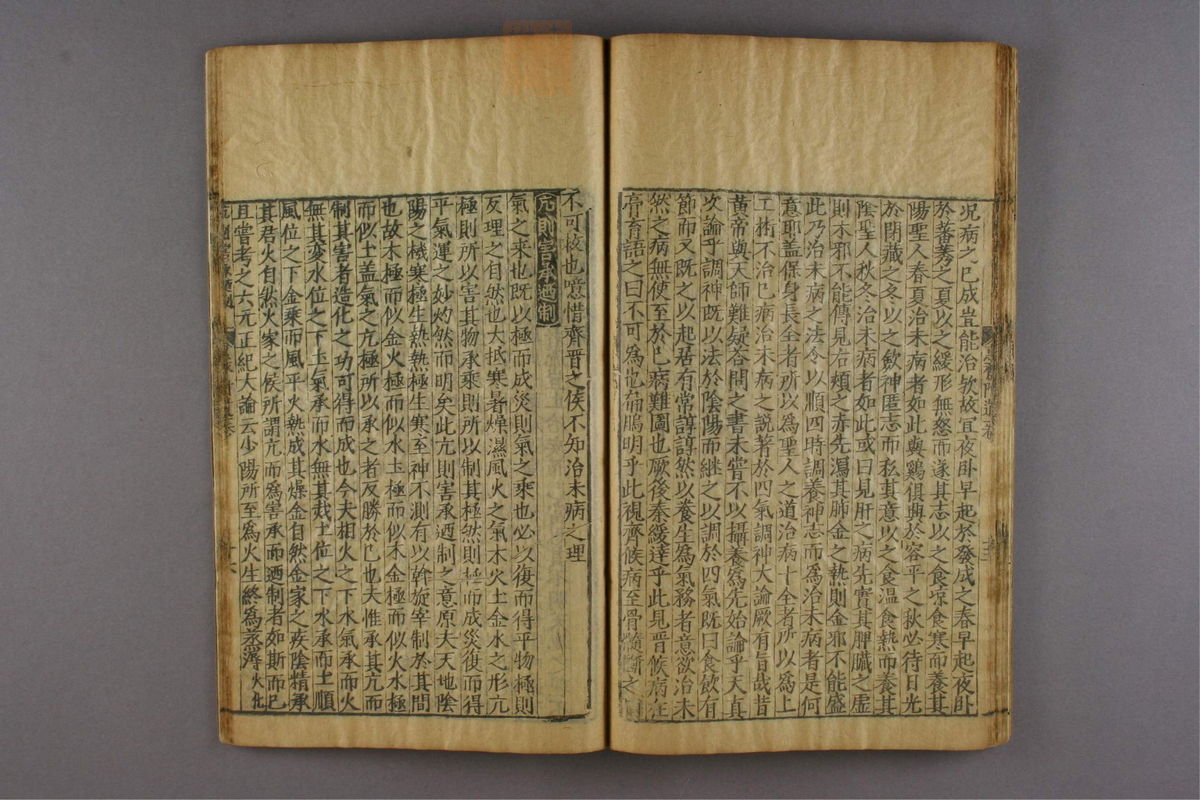 況病之已成豈能治欤故宜夜卧早起於發成之春早起夜卧
於蕃莠之夏以之緩形無怒而遂其志以之食凉食寒而養其
陽聖人春夏治未病者如此與鷄俱興於容平之秋必待日光
於閉藏之冬以之斂神匿志而私其意以之食温食熱而養其
隂聖人秋冬治未病者如此或曰見肝之病先實其脾臟之虚
則木邪不能傳見右頰之赤先瀉其肺金之熱則金邪不能盛
此乃治未病之法今以順四時調養神志而爲治未病者是何
意耶盖保身長全者所以爲聖人之道治病十全者所以爲上
工術不治已病治未病之說著於四氣調神大論厥有旨哉昔
黄帝與天師難疑答問之書未嘗不以攝養爲先始論乎天真
次論乎調神既以法於陰陽而継之以調於四氣既曰食飲有
節而又既之以起居有常諄諄然以養生爲氣務者意欲治未
然之病無使至於已病難圖也厥後秦緩達乎此見晋侯病在
膏肓語之曰不可爲也扁鵲明乎此視齊候病至骨髓斷之曰
不可救也噫惜齊晋之侯不知治未病之理
亢則害承迺制
氣之来也既以極而成災則氣之乘也必以復而得平物極則
反理之自然也大抵寒暑燥濕風火之氣木火土金水之形亢
極則所以害其物承乘則所以制其極然則極而成災復而得
平氣運之妙灼然而明矣此亢則害承迺制之意原夫天地陰
陽之機寒極生熱熱極生寒至神不測有以斡旋宰制於其間
也故木極而似金火極而似水土極而似木金極而似火水極
而似土盖氣之亢極所以承之者反勝於已也夫惟承其亢而
制其害者造化之功可得而成也今夫相火之下水氣承而火
無其変水位之下土氣承而水無其烖土位之下水承而土順
風位之下金乘而風平火熱成其燥金自然金家之疾陰精承
其君火自然火家之候所謂亢而爲害承而迺制者如斯而已
且嘗考之六元正紀大論云少陽所至爲火生終爲蒸溽火化
十六